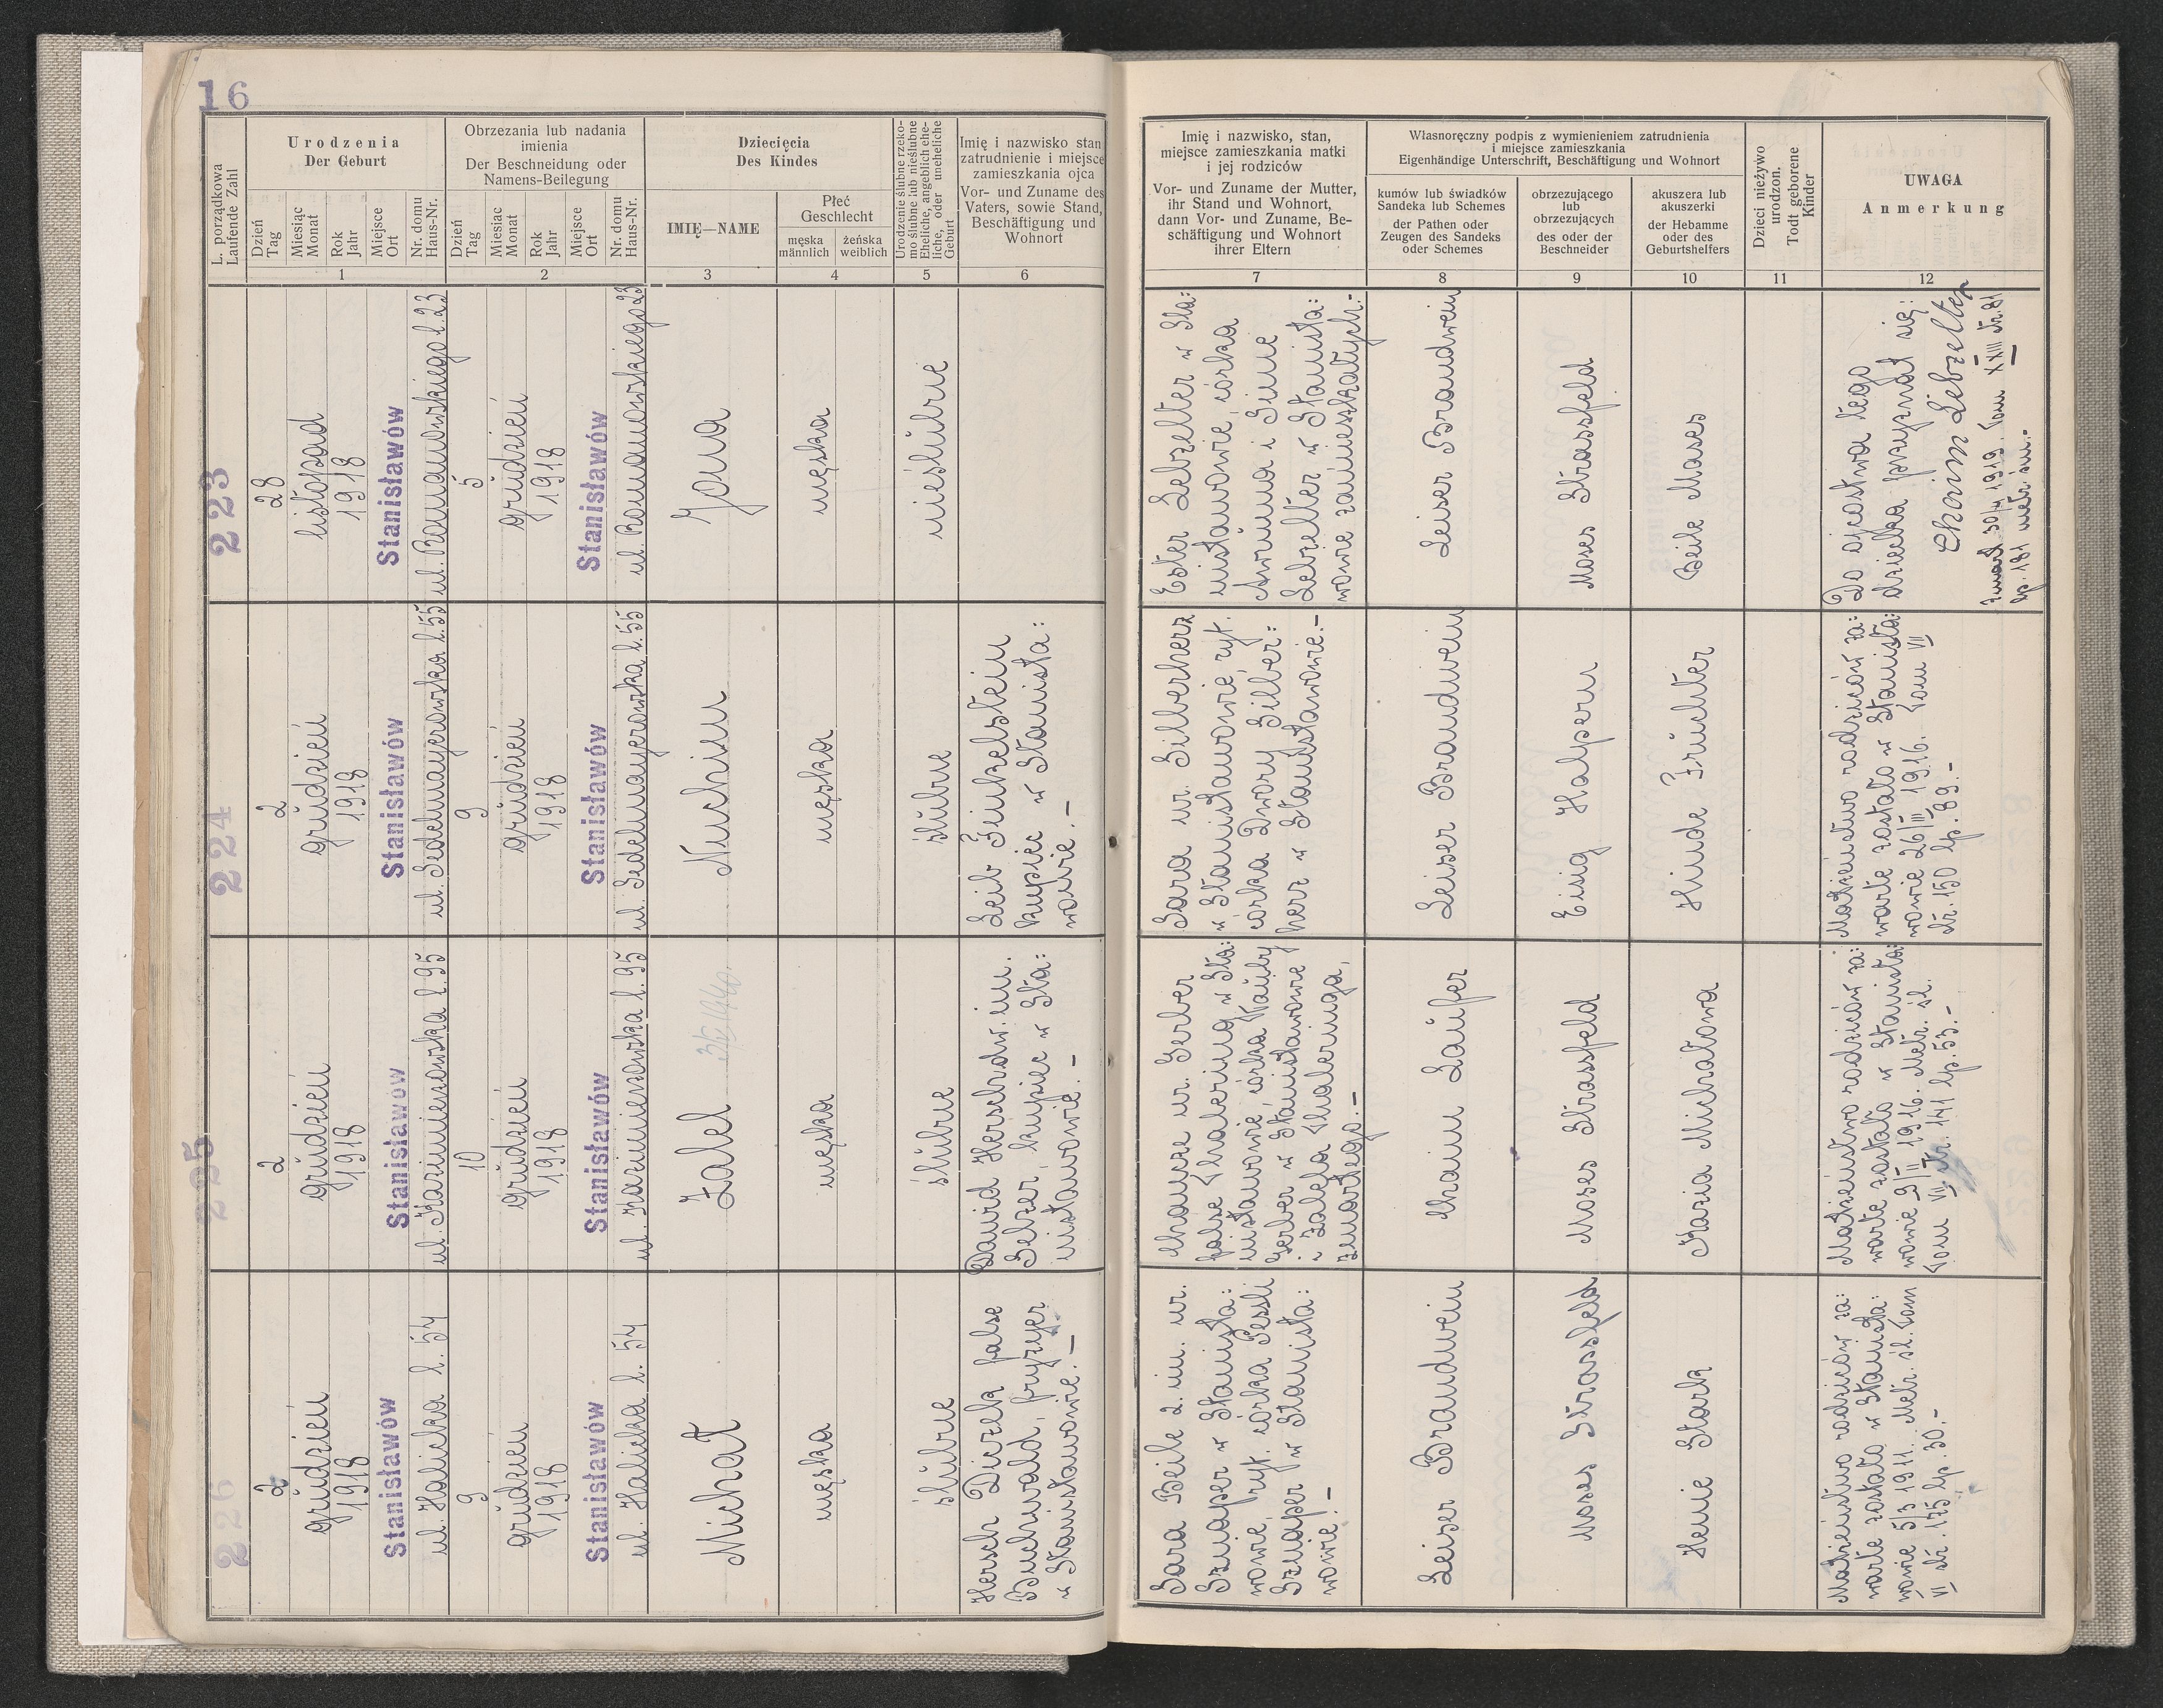 16
L. porządkowa
Laufende Zahl
Urodzenia
Der Geburt
Dzień
Tag
Miesiąc
Monat
Rok
Jahr
Miejsce
Ort
Nr. domu
Haus-Nr.
1
Obrzezania lub nadania
imienia
Der Beschneidung oder
Namens-Beilegung
Dzień
Tag
Miesiąc
Monat
Rok
Jahr
Miejsce
Ort
Nr. domu
Haus-Nr.
2
Dziecięcia
Des Kindes
IMIĘ—NAME
3
Płeć
Geschlecht
męska
männlich
żeńska
weiblich
4
Urodzenie ślubne rzeko-
mo ślubne lub nieślubne
Eheliche, angeblich ehe-
liche, oder uneheliche
Geburt
5
Imię i nazwisko stan
zatrudnienie i miejsce
zamieszkania ojca
Vor- und Zuname des
Vaters, sowie Stand,
Beschäftigung und
Wohnort
6
Imię i nazwisko, stan,
miejsce zamieszkania matki
i jej rodziców
Vor- und Zuname der Mutter,
ihr Stand und Wohnort,
dann Vor- und Zuname, Be-
schäftigung und Wohnort
ihrer Eltern
7
Własnoręczny podpis z wymienieniem zatrudnienia
i miejsce zamieszkania
Eigenhändige Unterschrift, Beschäftigung und Wohnort
kumów lub świadków
Sandeka lub Schemes
der Pathen oder
Zeugen des Sandeks
oder Schemes
8
obrzezującego
lub
obrzezujących
des oder der
Beschneider
9
akuszera lub
akuszerki
der Hebamme
oder des
Geburtshelfers
10
Dzieci nieżywo
urodzon.
Todt geborene
Kinder
11
UWAGA
Anmerkung
12
223
28
listopad
1918
Stanisławów
ul. Romanowskiego l. 23
5
grudzień
1918
Stanisławów
ul. Romanowskiego 23
Jona
męska
nieślubne
Ester Lebzelter w Sta:
nisławowie, córka
Awruma i Sime
Lebzelter w Stanisła:
wowie zamieszkałych.-
Leiser Brandwein
Moses Strassfeld
Beile Moses
Do ojcostwa tego
dziecka przyznał się:
Chaim Lebzelter
zmarł 30/4 1919. Tom XXIII str. 81
lp. 181 metr. śm.-
224
2
grudzień
1918
Stanisławów
ul. Sedelmayerowska l. 55
9
grudzień
1918
Stanisławów
ul. Sedelmayerowska l. 55
Nuchim
męska
ślubne
Leib Finkelstein
kupiec w Stanisła:
wowie.-
Sara ur. Silberherz
w Stanisławowie, ryt.
córka Dwory Silber=
herz w Stanisławowie.-
Leiser Brandwein
Eisig Halpern
Hinde Früchter
Małżeństwo rodziców za:
warte zostało w Stanisła:
wowie 26/III 1916. Tom VII
str. 150 lp. 89.-
225
2
grudzień
1918
Stanisławów
ul. Kazimierzowska l. 95
10
grudzień
1918
Stanisławów
ul. Kazimierzowska l. 95
Zalel
męska
ślubne
Dawid Hersch dw. im.
Selzer, kupiec w Sta:
nisławowie.-
Chancze ur. Gerber
false Thalering w Sta:
nisławowie, córka Tauby
Gerber w Stanisławowie
i Zalela Thaleringa,
zmarłego.-
Chaim Laufer
Moses Strassfeld
Maria Michałowa
Małżeństwo rodziców za:
warte zostało w Stanisła:
wowie 9/II 1916. Metr. śl.
Tom VII str. 141 lp. 53.-
226
2
grudzień
1918
Stanisławów
ul. Halicka l. 54
9
grudzień
1918
Stanisławów
ul. Halicka l. 54
Michał
męska
ślubne
Hersch Diczek false
Buchwald, fryzyer
w Stanisławowie.-
Sara Beile 2. im. ur.
Sznaper w Stanisła:
wowie, ryt. córka Pessli
Sznaper w Stanisła:
wowie.-
Leiser Brandwein
Moses Strassfeld
Henie Stark
Małżeństwo rodziców za:
warte zostało w Stanisła:
wowie 5/3 1911. Metr. śl. Tom
VI str. 175 lp. 30.-